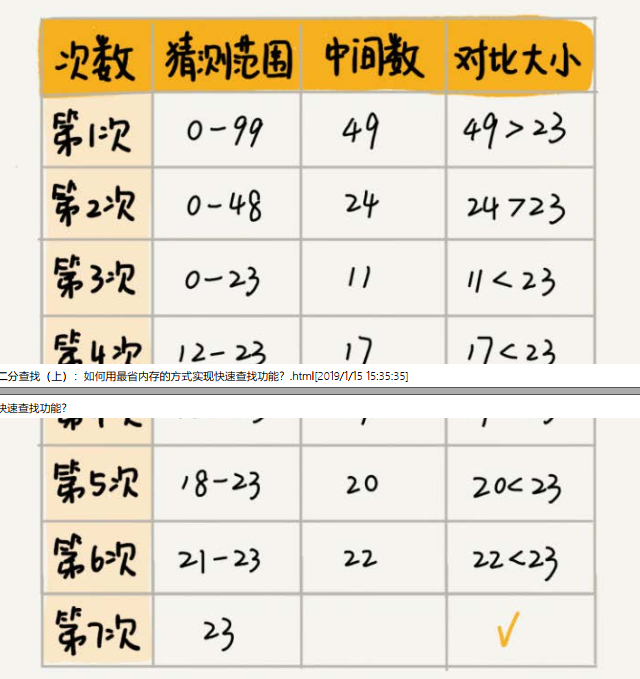 次数 猜测范围 中间数 对比大小
第1次 0-99 49 49>23
第2次 0-48 24 24>23
第3次 0-23 11 11<23
第4次 12-23 17 17<23
二分查找（上）：如何用最省内存的方式实现快速查找功能？.html[2019/1/15 15:35:35]
快速查找功能?
第5次 18-23 20 20<23
第6次 21-23 22 22<23
第7次 23 √